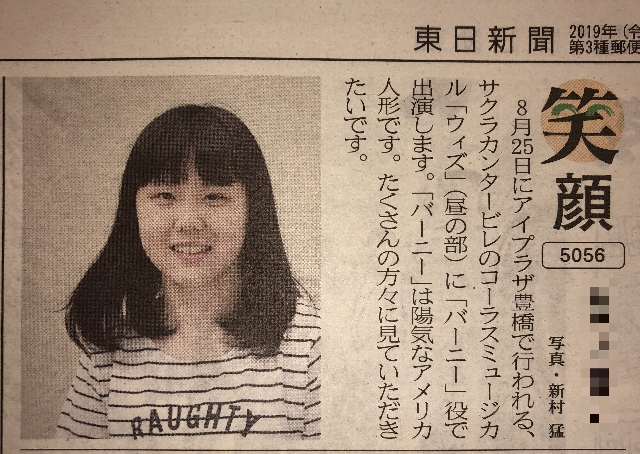 東日新聞
2019年(令
第3種郵便
笑顔
5056
写真・新村 猛
8月25日にアイプラザ豊橋で行われる、
サクラカンタービレのコーラスミュージカ
ル「ウィズ」(昼の部)に「バーニー」役で
出演します。「バーニー」は陽気なアメリカ
人形です。たくさんの方々に見ていただき
たいです。
RAUGHTY